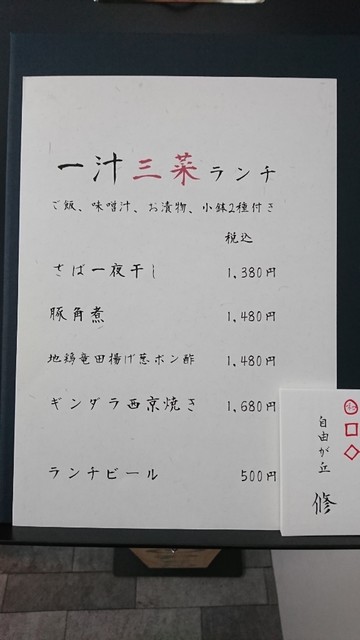 一汁三菜ランチ
ご飯、味噌汁、お漬物、小鉢2種付き
税込
さば一夜干し 1,380円
豚角煮 1,480円
地鶏竜田揚げ葱ポン酢 1,480円
ギンダラ西京焼き 1,680円
ランチビール 500円
自由が丘
修